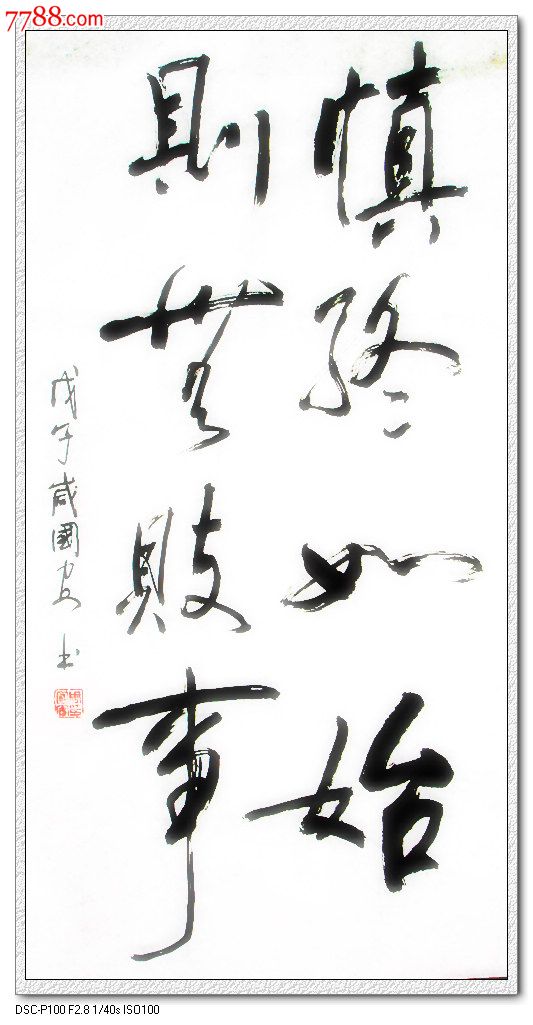 7788.com
慎终如始
則無敗事
戊午歲國安书
DSC-P100 F2.8 1/40s ISO100